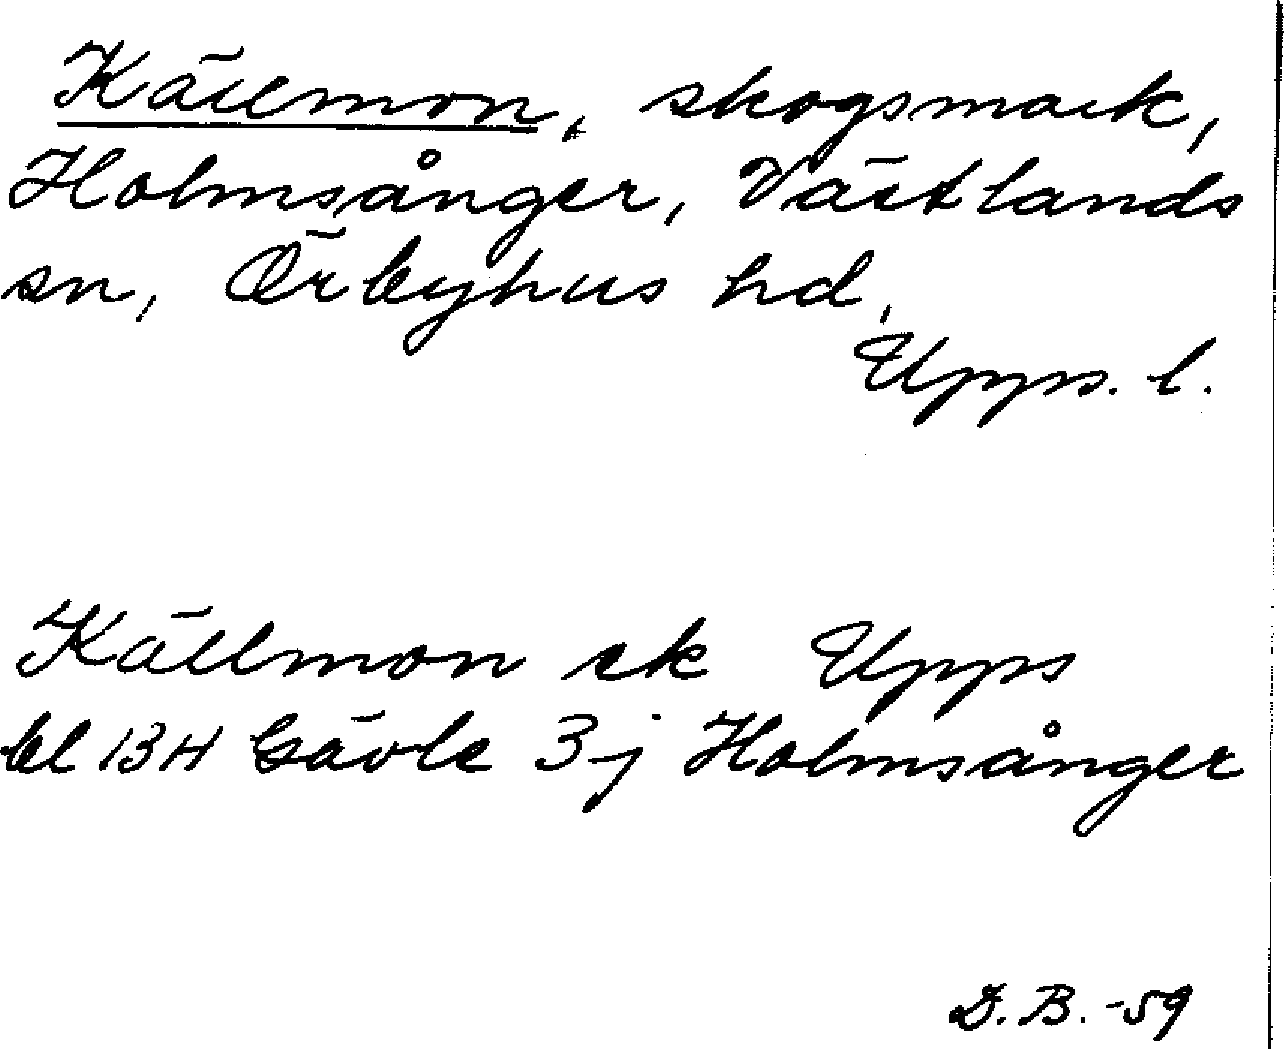 Källmon, skogsmark,
Holmsånger, Västlands
sn, Örbyhus hd,
Upps. l.
Källmon ek Upps
bl 13H Gävle 3j Holmsånger
D.B. -59